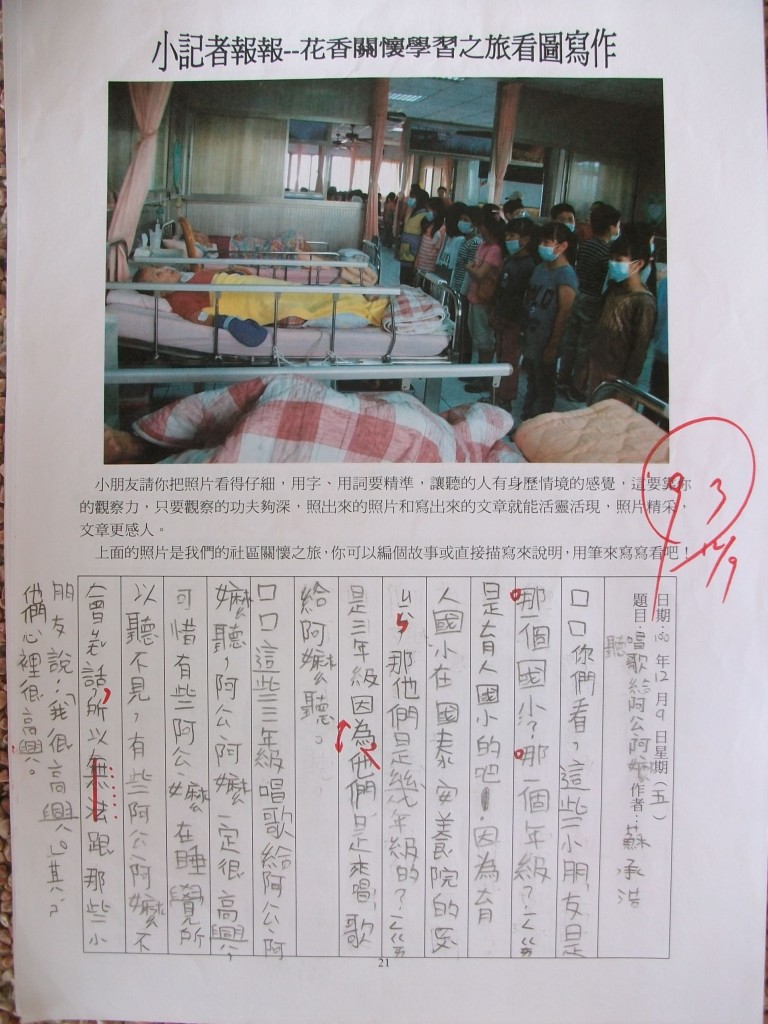 小記者報報--花香關懷學習之旅看圖寫作
小朋友請你把照片看得仔細，用字、用詞要精準，讓聽的人有身歷情境的感覺，這要靠你
的觀察力，只要觀察的功夫夠深，照出來的照片和寫出來的文章就能活靈活現，照片精采，
文章更感人。
上面的照片是我們的社區關懷之旅，你可以編個故事或直接描寫來說明，用筆來寫寫看吧！
93
12/9
日期：100年12月9日星期（五）
題目：唱歌給阿公、阿嬤聽 作者：蘇承浩
口口你們看，這些小朋友是
那一個國小？那一個年級？ㄧㄍㄞ
是育人國小的吧！因為育
人國小在國泰安養院的
那他們是幾年級的？ㄧㄍㄞ
是三年級因為他們是來唱歌
給阿嬤聽。
口口這些三年級唱歌給阿公、阿
嬤聽，阿公、阿嬤一定很高興，
可惜有些阿公、嬤在睡覺所
以聽不見，有些阿公、阿嬤不
會說話，所以無法跟那些小
朋友說：「我很高興。」其ㄕˊ
他們心裡很高興。
21